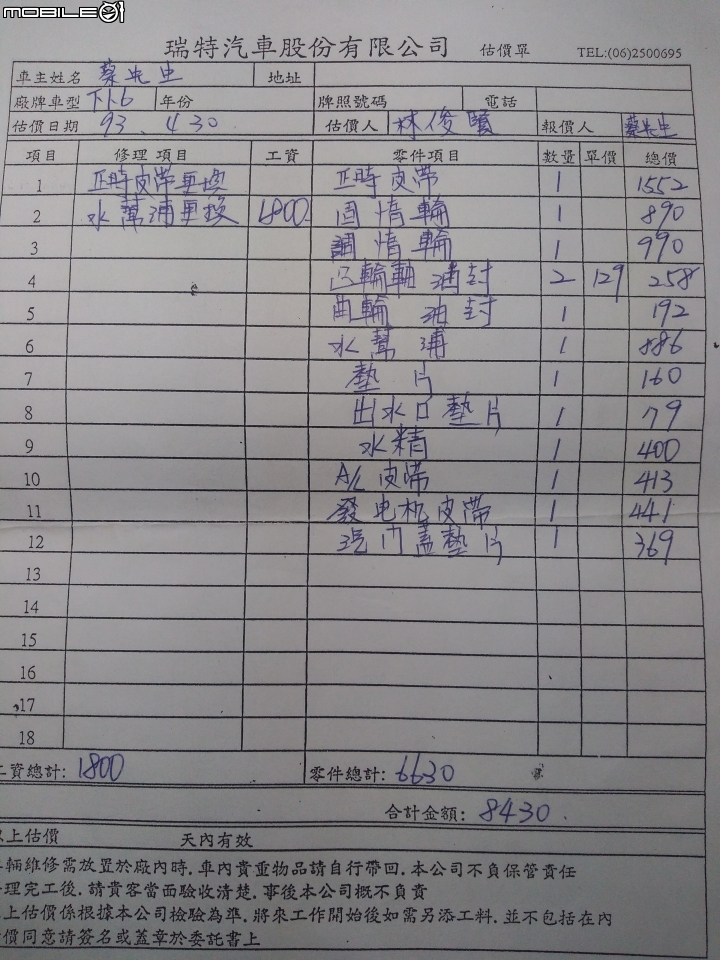 MOBILE01
瑞特汽車股份有限公司 估價單 TEL:(06)2500695
車主姓名 蔡先生 地址
廠牌車型 年份 牌照號碼 電話
估價日期 93. 4 30 估價人 林俊 報價人 蔡先生
項目 修理 項目 工資 零件項目 數量 單價 總價
1 正時皮帶更換 正時皮帶 1 1552
2 水幫浦更換 1800 固惰輪 1 890
3 調惰輪 1 990
4 凸輪軸油封 2 129 258
5 曲輪油封 1 192
6 水幫浦 1 886
7 墊片 1 160
8 出水口墊片 1 79
9 水精 1 400
10 A/C皮帶 1 413
11 發电机皮帶 1 441
12 汽門蓋墊片 1 369
13
14
15
16
17
18
工資總計: 1800 零件總計: 6630
合計金額: 8430.
以上估價 天內有效
車輛維修需放置於廠內時.車內貴重物品請自行帶回.本公司不負保管責任
理完工後.請貴客當面驗收清楚.事後本公司概不負責
以上估價係根據本公司檢驗為準.將來工作開始後如需另添工料.並不包括在內
價同意請簽名或蓋章於委託書上